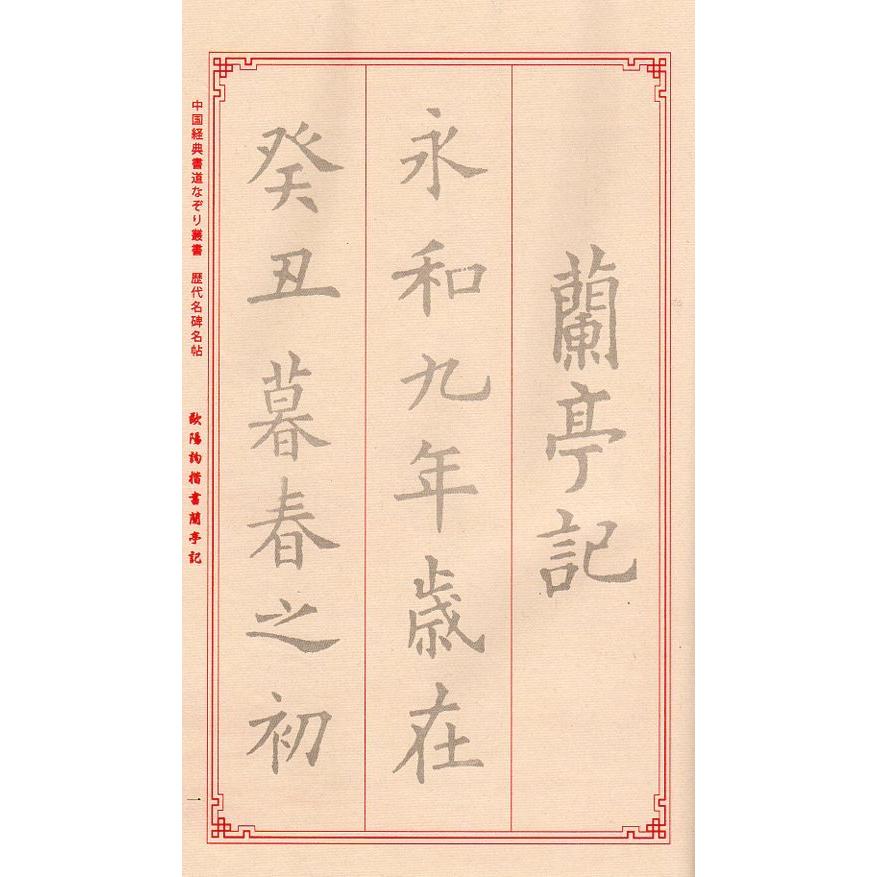 蘭亭記
永和九年歳在
癸丑暮春之初
中国経典書道なぞり叢書 歴代名碑名帖 欧陽詢楷書蘭亭記
一